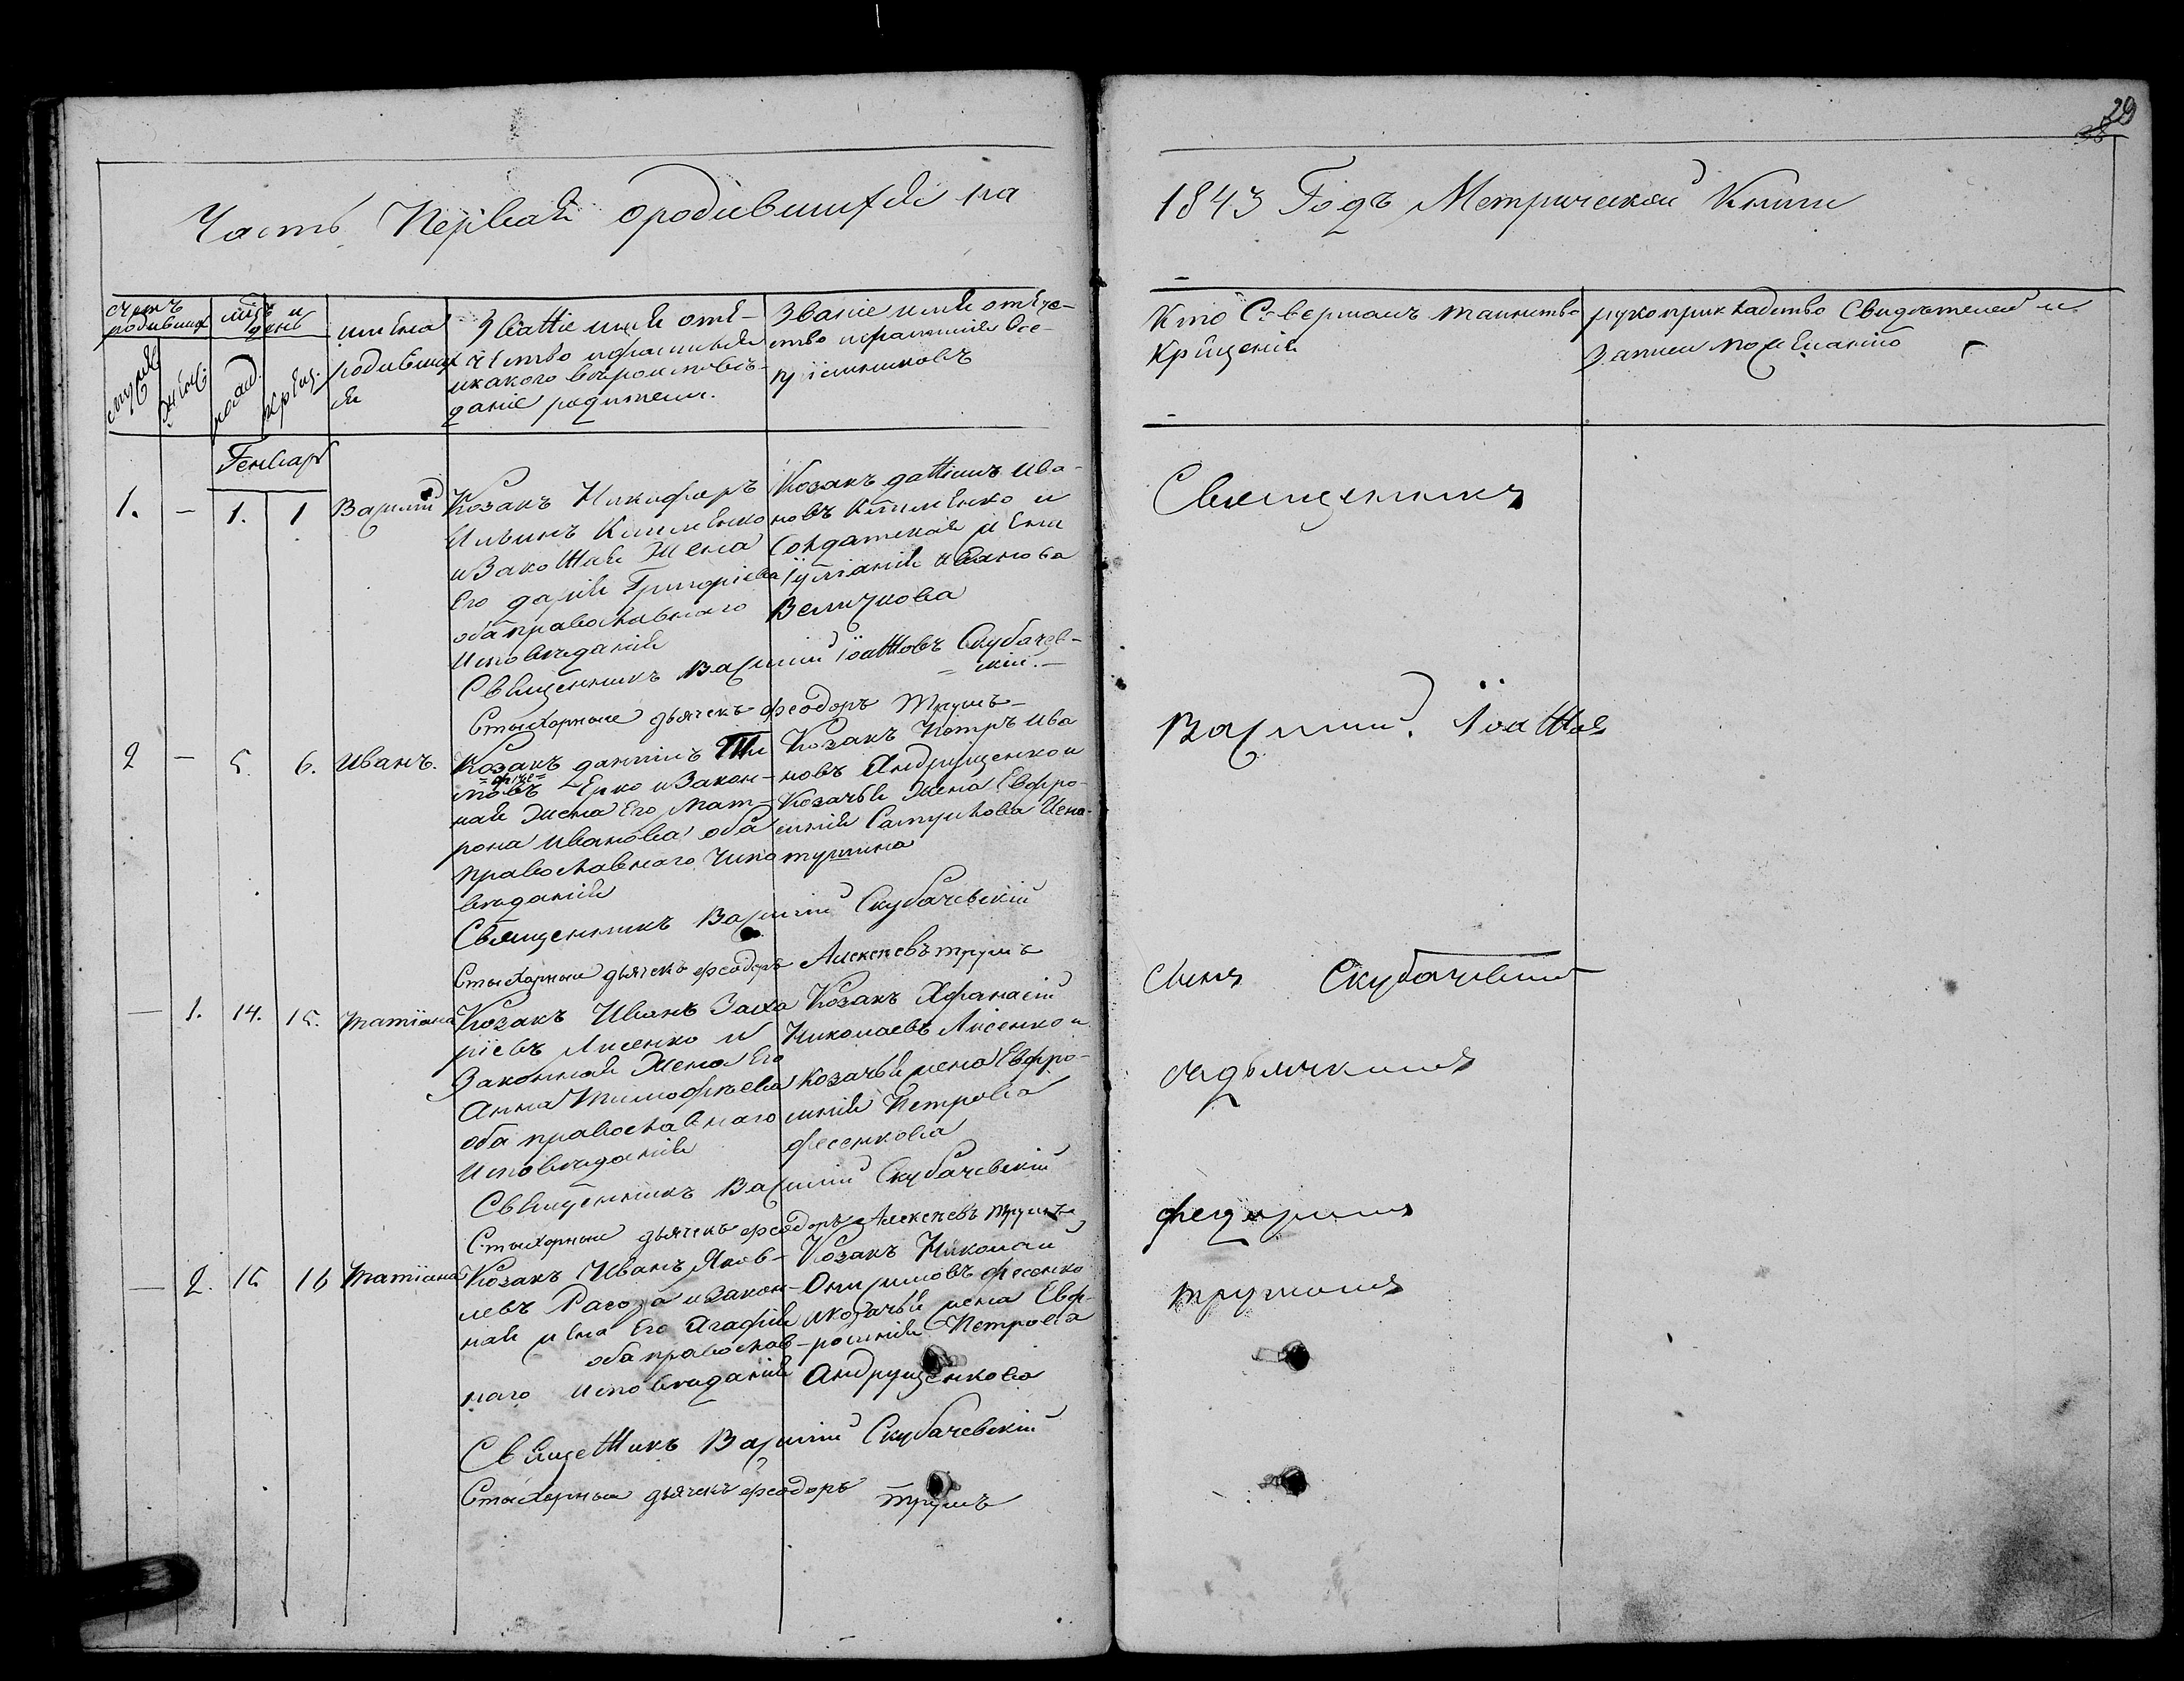 29
Часть Первая ородившихся на
1843 Годъ Метрической Книги
счетъ родившихся
мцъ и день
имена родившихся
Званіе имя отъ-
чество ифамилія
икакого вѣроисповѣ-
даніе родители.
Званіе имя отече-
ство ифамилія вос-
пріемниковъ
Кто Совершалъ таинство
Крещенія
рукоприкладство Свидѣтелей и
записи пожеланію
мужс.
женс.
рожд.
крещ.
Генварь
1. — 1. 1 Василій
Козакъ Никифоръ
Ильинъ
иЗаконная Жена
Его дарія Григоріева
оба православнаго
Исповѣданія
Козакъ даніилъ Ива-
новъ и
Солдатская жена
Іуліанія Иванова
Величкова
Священникъ Василій Іоанновъ Скубачев-
скій.—
Стихарный дьячекъ феодоръ Трушъ—
2 — 5. 6. Иванъ.
Козакъ даніилъ
иЗакон-
ная Жена Его Мат-
рона Иванова оба
православнаго Испо
вѣданія
Козакъ Петръ Ива
новъ Андрущенко и
Козачья Жена Евфро-
синія
Священникъ Василій Скубачевскій
Стихарный дьячекъ феодоръ Алексѣевъ трушъ
— 1. 14. 15. Татіана
Козакъ Иванъ Заха
ріевъ Лисенко и
Законная Жена Его
Анна Тимофѣева
оба православнаго
Исповѣданія
Козакъ Афанасій
Николаевъ Лисенко и
Козачья жена Евфро-
синія Петрова
фесенкова
Священникъ Василій Скубачевскій
Стихарный дьячекъ феодоръ Алексѣевъ трушъ
— 2. 15 16 Татіана
Козакъ Иванъ Яков-
левъ Рагоза иЗакон-
ная жена Его Агафія
оба православ-
наго исповѣданія
Козакъ Николай
Онисимовъ фесенко
икозачья жена Евф-
росинія Петрова
Андрущенкова
Священникъ Василій Скубачевскій
Стихарный дьячекъ феодоръ
трушъ
Священникъ
Василій Іоанновъ
сынъ Скубачевскій
сдьячкомъ
федоромъ
трушомъ